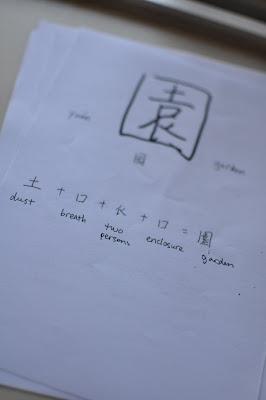 園
yuán 園 garden
土 + 口 + 𧘇 + 口 = 園
dust breath two persons enclosure garden